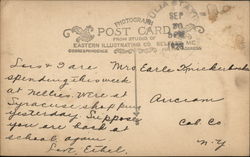 PHOTOGRAPH
POST CARD
FROM STUDIO OF
EASTERN ILLUSTRATING CO. BELFAST, ME.
CORRESPONDENCE
ADDRESS
SEP
Sors & I are
spending this week
at Nellies. Were at
Syracuse shopping
yesterday. Suppose
you are back at
school again.
Love, Ethel
Mrs Earle Knickerbocker
Cal Co
N-Y